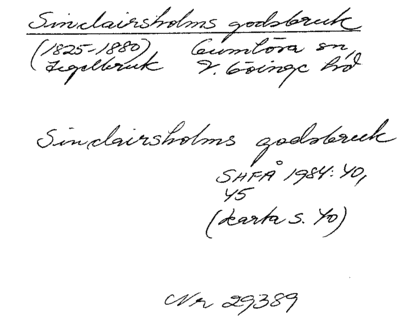 Sinclairsholms godsbruk
(1825-1880) Gumlösa sn,
Tegelbruk V. Göinge hd
Sinclairsholms godsbruk
SHFÅ 1984: 40,
45
(karta s. 40)
Nr 29389